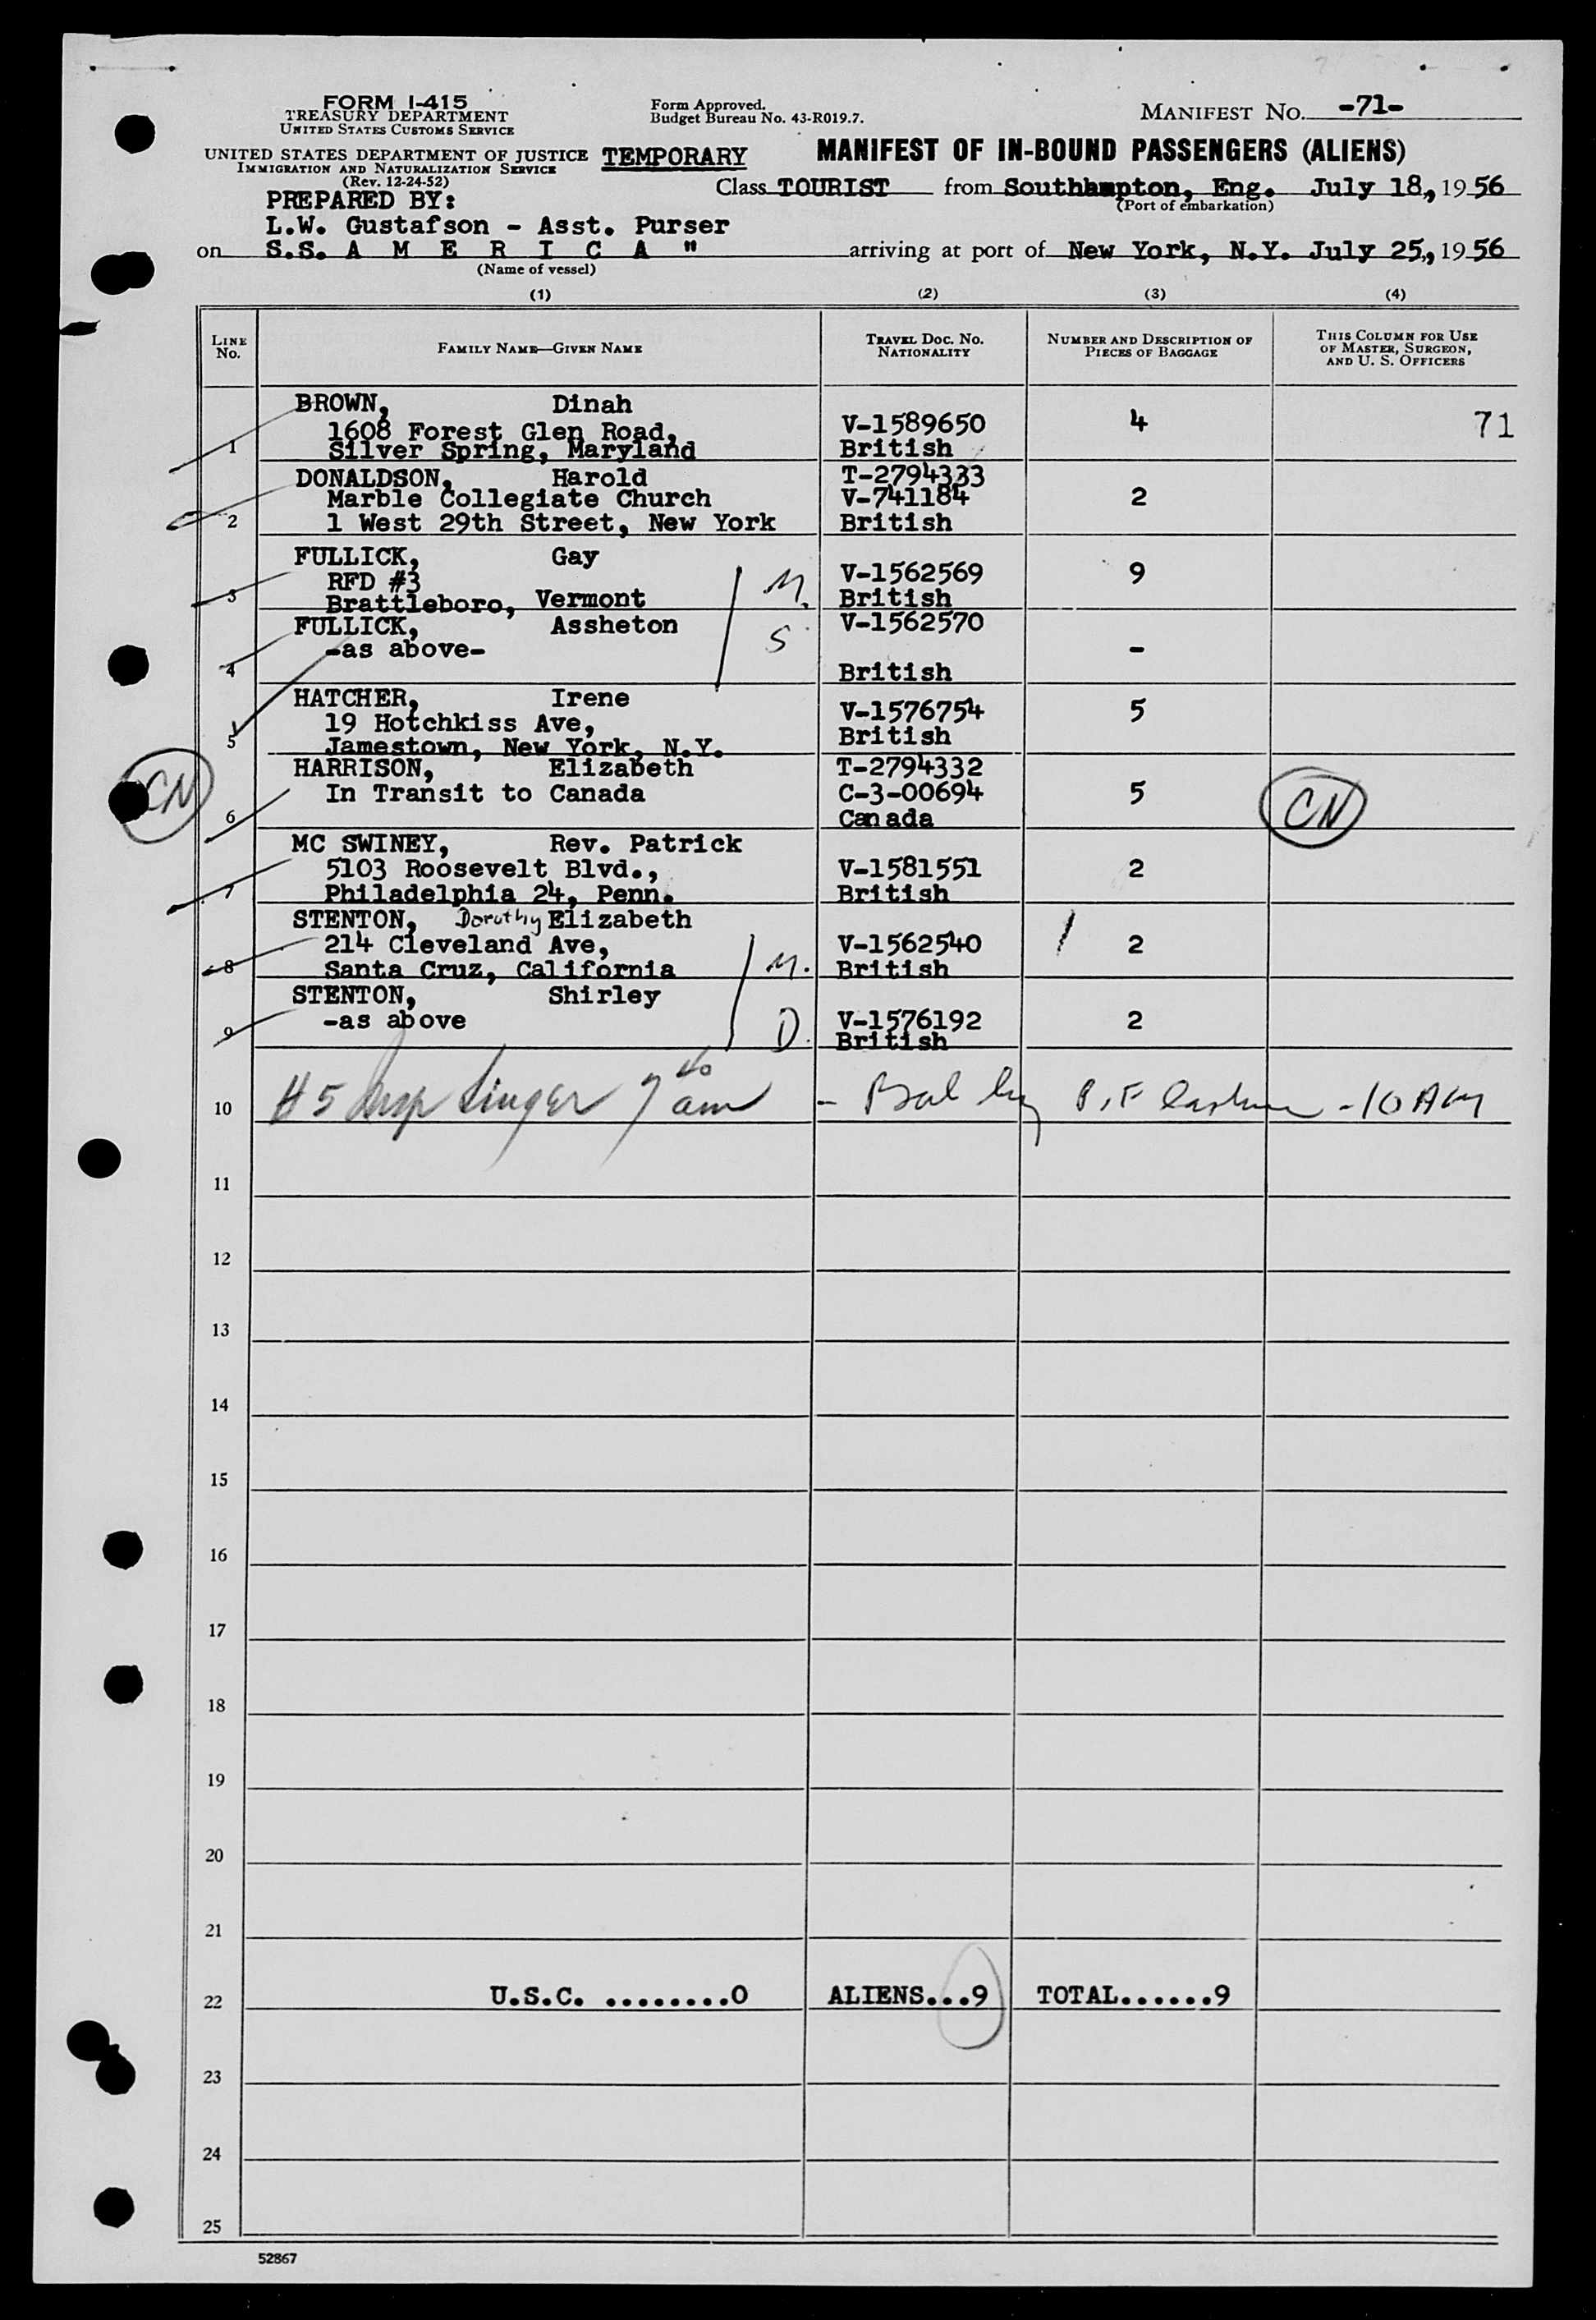 FORM I-415
TREASURY DEPARTMENT
UNITED STATES CUSTOMS SERVICE
Form Approved.
Budget Bureau No. 43-R019.7.
MANIFEST No. -71-
UNITED STATES DEPARTMENT OF JUSTICE
IMMIGRATION AND NATURALIZATION SERVICE
(Rev. 12-24-52)
TEMPORARY
MANIFEST OF IN-BOUND PASSENGERS (ALIENS)
Class TOURIST from Southhampton, Eng. July 18,, 1956
(Port of embarkation)
PREPARED BY:
L.W. Gustafson - Asst. Purser
on S.S. A M E R I C A " arriving at port of New York, N.Y. July 25,, 1956
(Name of vessel)
(1) (2) (3) (4)
LINE No. FAMILY NAME—GIVEN NAME TRAVEL DOC. No. NATIONALITY NUMBER AND DESCRIPTION OF PIECES OF BAGGAGE THIS COLUMN FOR USE OF MASTER, SURGEON, AND U. S. OFFICERS
BROWN, Dinah
1608 Forest Glen Road, V-1589650 4 71
1 Silver Spring, Maryland British
DONALDSON, Harold T-2794333
Marble Collegiate Church V-741184 2
2 1 West 29th Street, New York British
FULLICK, Gay
RFD #3 M. V-1562569 9
3 Brattleboro, Vermont British
FULLICK, Assheton S V-1562570
-as above- -
4 British
HATCHER, Irene
19 Hotchkiss Ave, V-1576754 5
5 Jamestown, New York, N.Y. British
HARRISON, Elizabeth T-2794332
CN In Transit to Canada C-3-00694 5 CN
6 Canada
MC SWINEY, Rev. Patrick
5103 Roosevelt Blvd., V-1581551 2
7 Philadelphia 24, Penn. British
STENTON, Dorothy Elizabeth
214 Cleveland Ave, V-1562540 2
8 Santa Cruz, California M. British
STENTON, Shirley
-as above D. V-1576192 2
9 British
10 # 5 Insp Singer 7 40 am - Bal by - 10 AM
11
12
13
14
15
16
17
18
19
20
21
22 U.S.C. ........0 ALIENS...9 TOTAL......9
23
24
25
52867